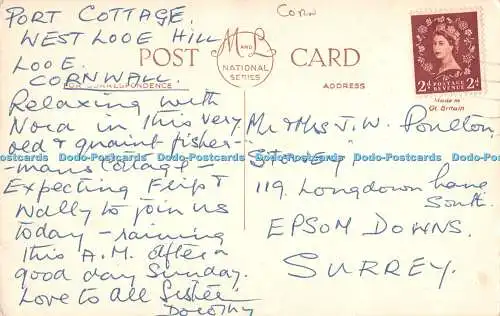 Corn
PORT COTTAGE.
WEST LOOE HILL
LOOE.
CORNWALL.
POST CARD
M and L
NATIONAL
SERIES
FOR CORRESPONDENCE
ADDRESS
2d POSTAGE REVENUE 2d
Made in
Gt. Britain
Relaxing with
Nora in this very
old & quaint fisher-
mans cottage -
Expecting &
Wally to join us
today - raining
this A.M. after a
good day Sunday.
Love to all
Dorothy
Mr & Mrs J. W. Poulton,
119, Longdown Lane
South.
EPSOM DOWNS.
SURREY.
Dodo-Postcards Dodo-Postcards Dodo-Postcards Dodo-Postcards Dodo-Postcards